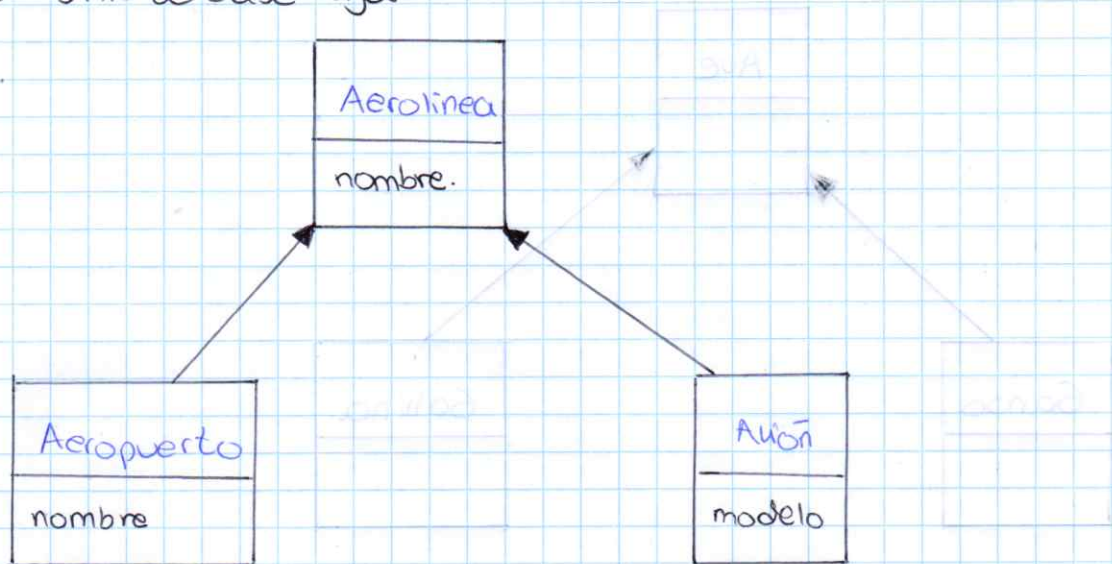 Aerolinea
nombre.
Aeropuerto
nombre
Avión
modelo